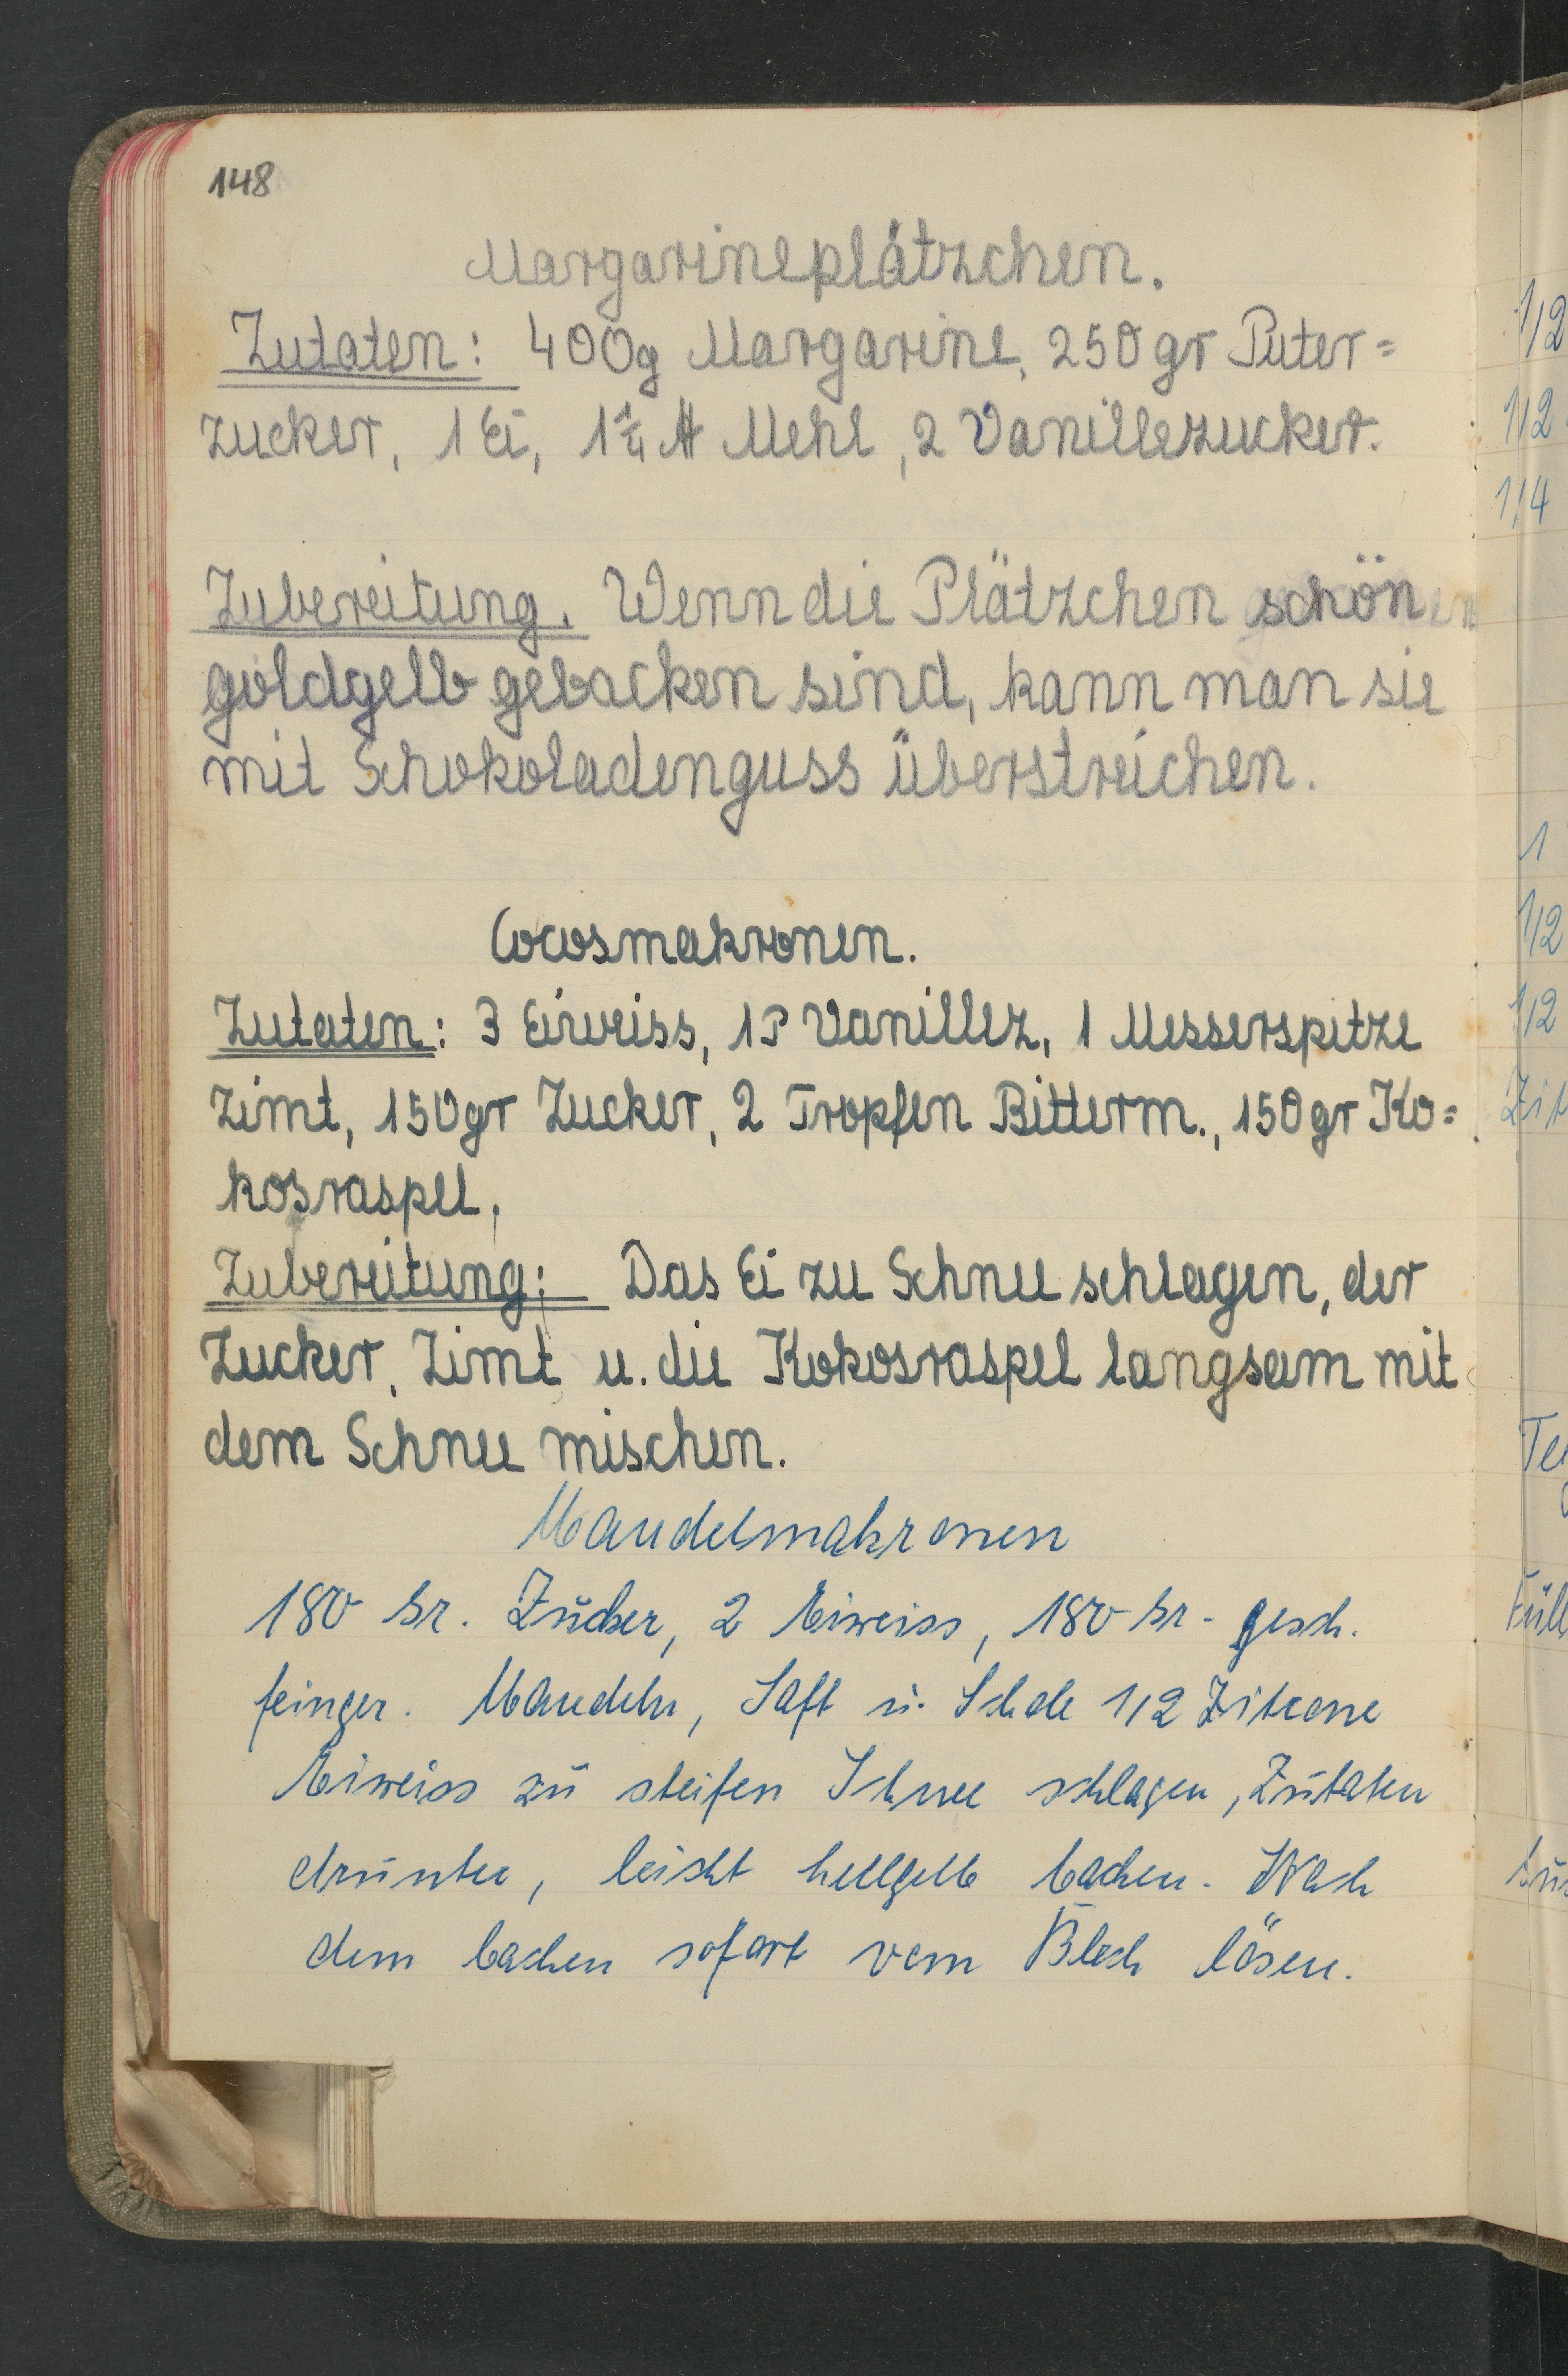 148
Margarineplätzchen.
Zutaten: 400g Margarine, 250 gr Puter=
zucker, 1 Ei, 1 1/4 ℔ Mehl, 2 Vanillezucker.
Zubereitung. Wenn die Plätzchen schön
goldgelb gebacken sind, kann man sie
mit Schokoladenguss überstreichen.
Cocosmakronen.
Zutaten: 3 Eiweiss, 1 P Vanillez, 1 Messerspitze
Zimt, 150gr Zucker, 2 Tropfen Bitterm., 150 gr Ko=
kosraspel.
Zubereitung: Das Ei zu Schnee schlagen, der
Zucker, Zimt u. die Kokosraspel langsam mit
dem Schnee mischen.
Mandelmakronen
180 Gr. Zucker, 2 Eiweiss, 180 Gr. gesch.
feinger. Mandeln, Saft u. Schale 1/2 Zitrone
Eiweiss zu steifen Schnee schlagen, Zutaten
drunter, leicht hellgelb backen. Nach
dem backen sofort vom Blech lösen.
1/2
1/2
1/4
1
1/2
1/2
Zit
Te
Füll